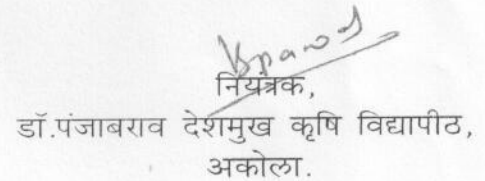 नियंत्रक,
डॉ.पंजाबराव देशमुख कृषि विद्यापीठ,
अकोला.